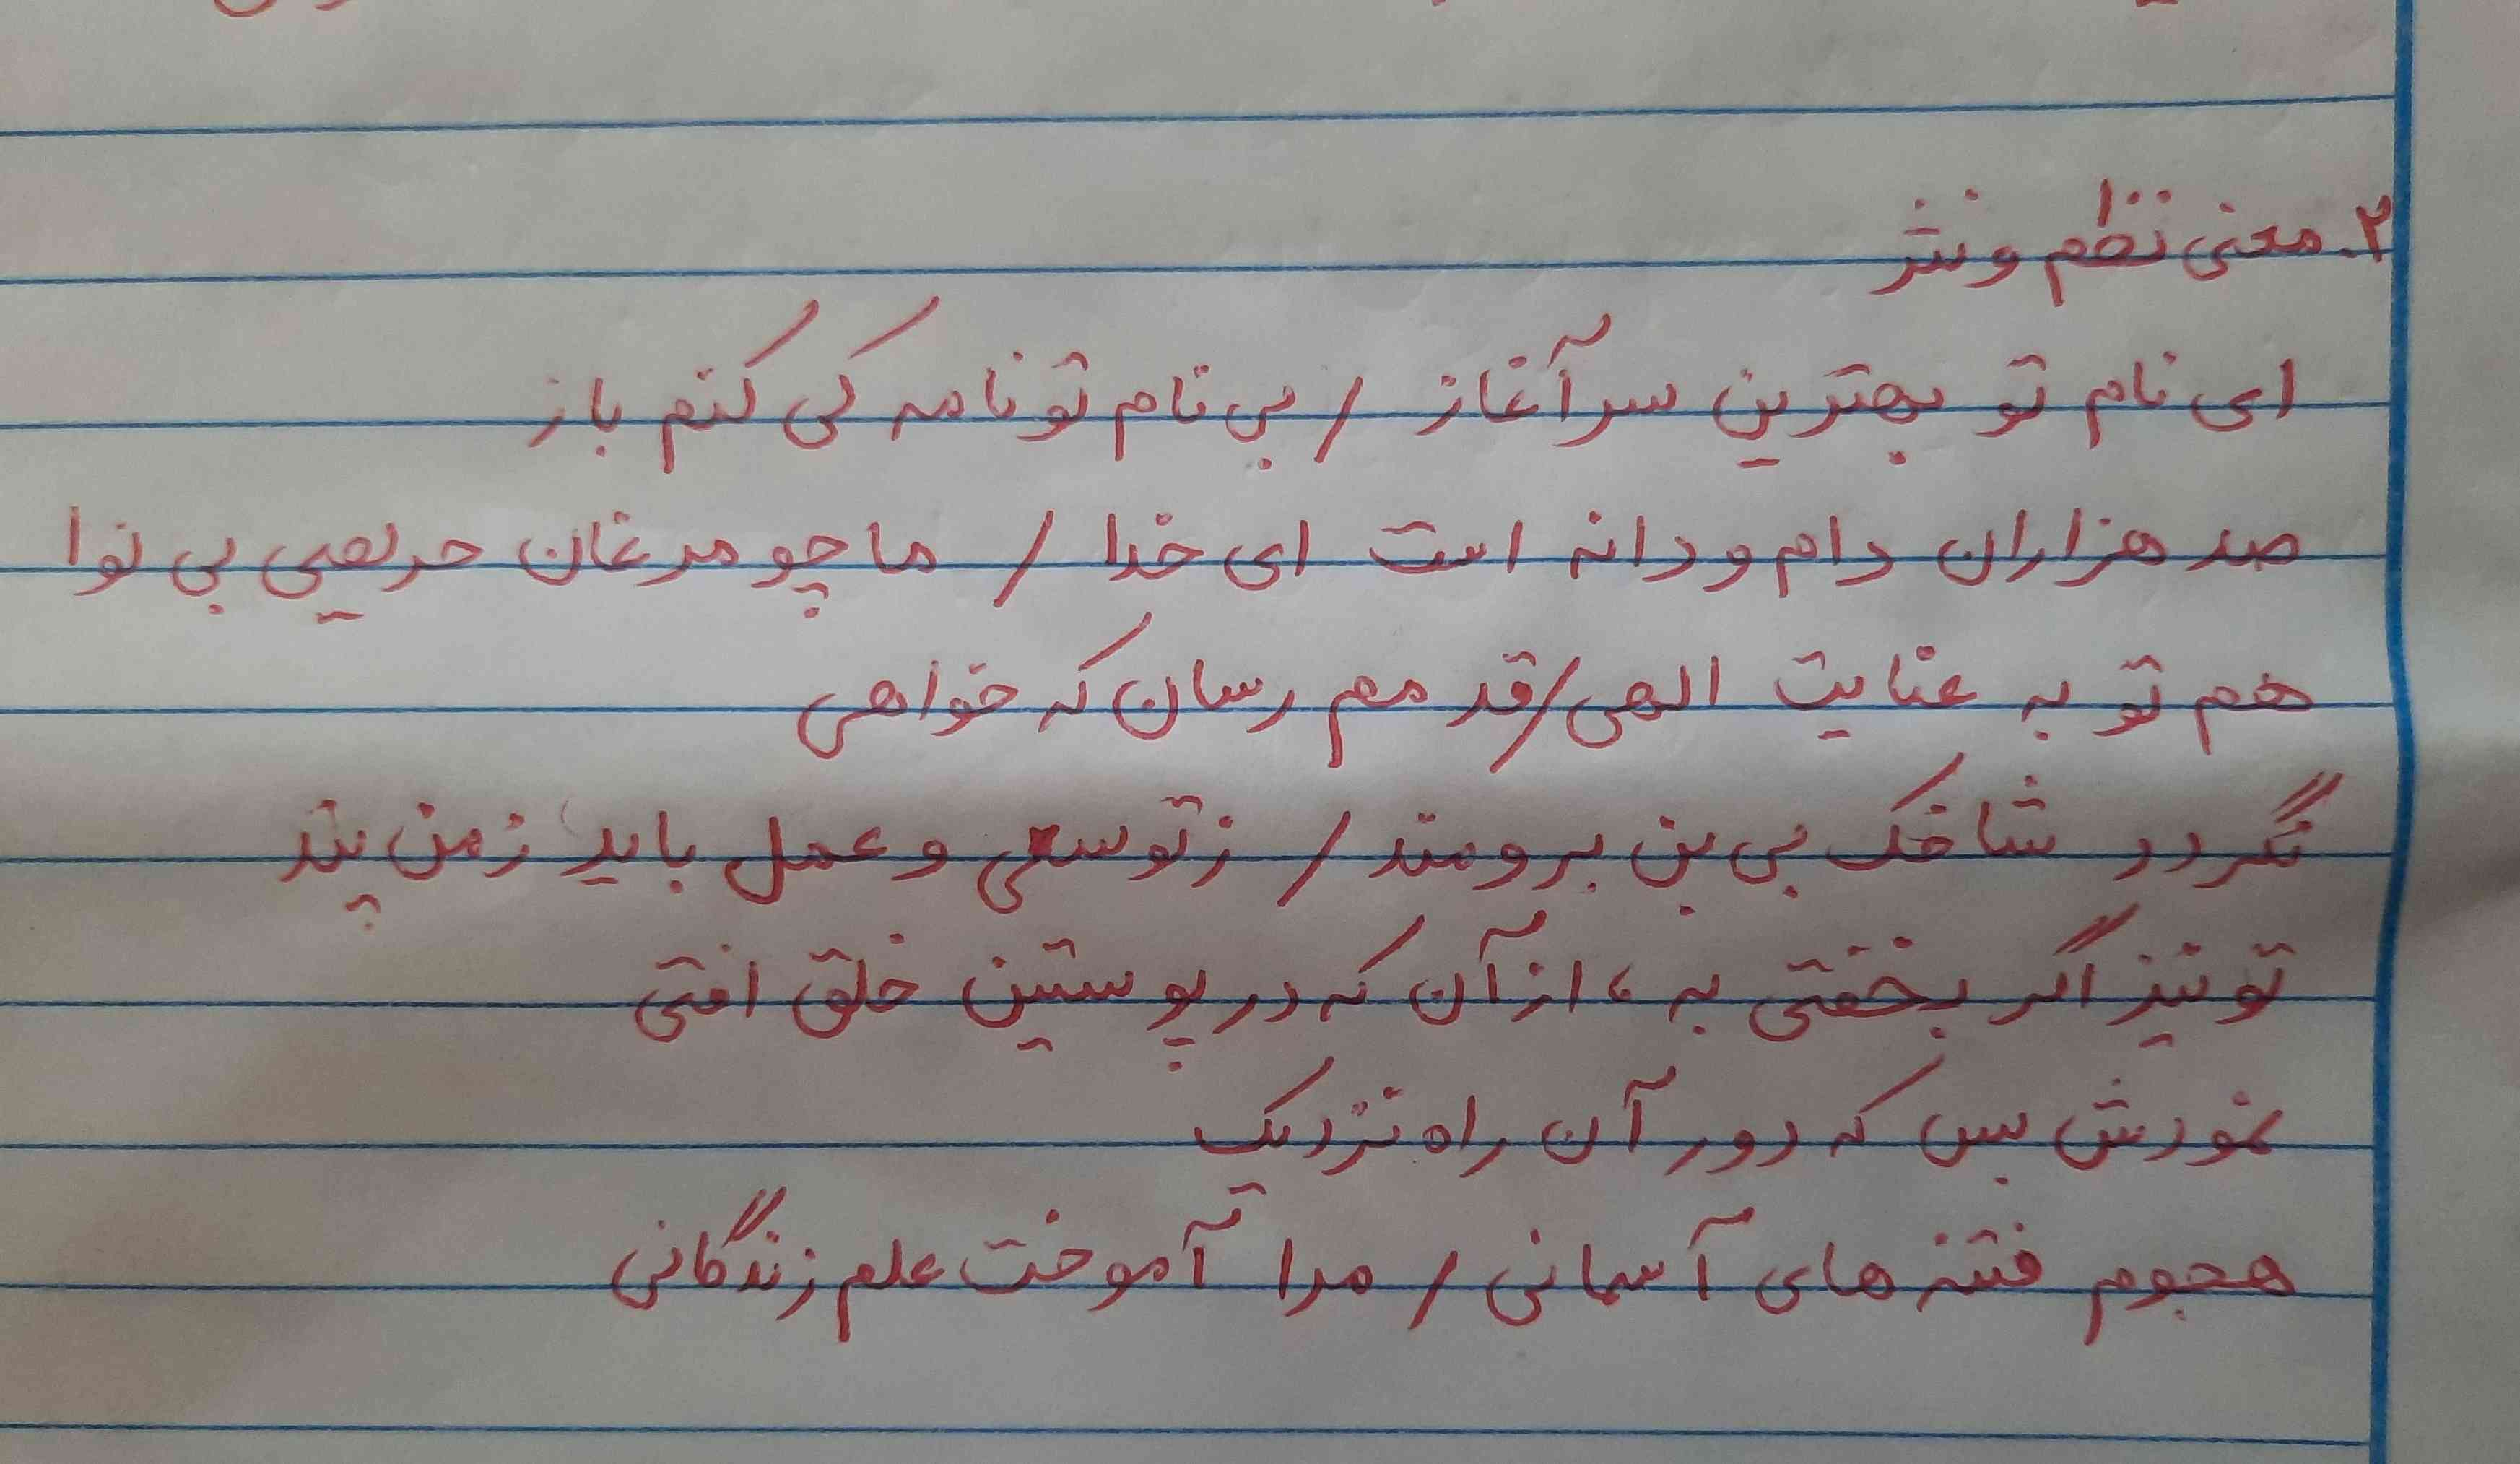 ۲. معنی نظم و نثر
ای نام تو بهترین سرآغاز / بی نام تو نامه کی کنم باز
صد هزاران دام و دانه است ای خدا / ما چو مرغان حریصی بی نوا
هم تو به عنایت الهی / قدمم رسان که خواهی
نگردد شاخک بی بن برومند / ز تو سعی و عمل باید ز من پند
تو نیز اگر بخفتی به، از آن که در پوستین خلق افتی
نمودش بس که دور آن راه نزدیک
هجوم فتنه های آسمانی / مرا آموخت علم زندگانی